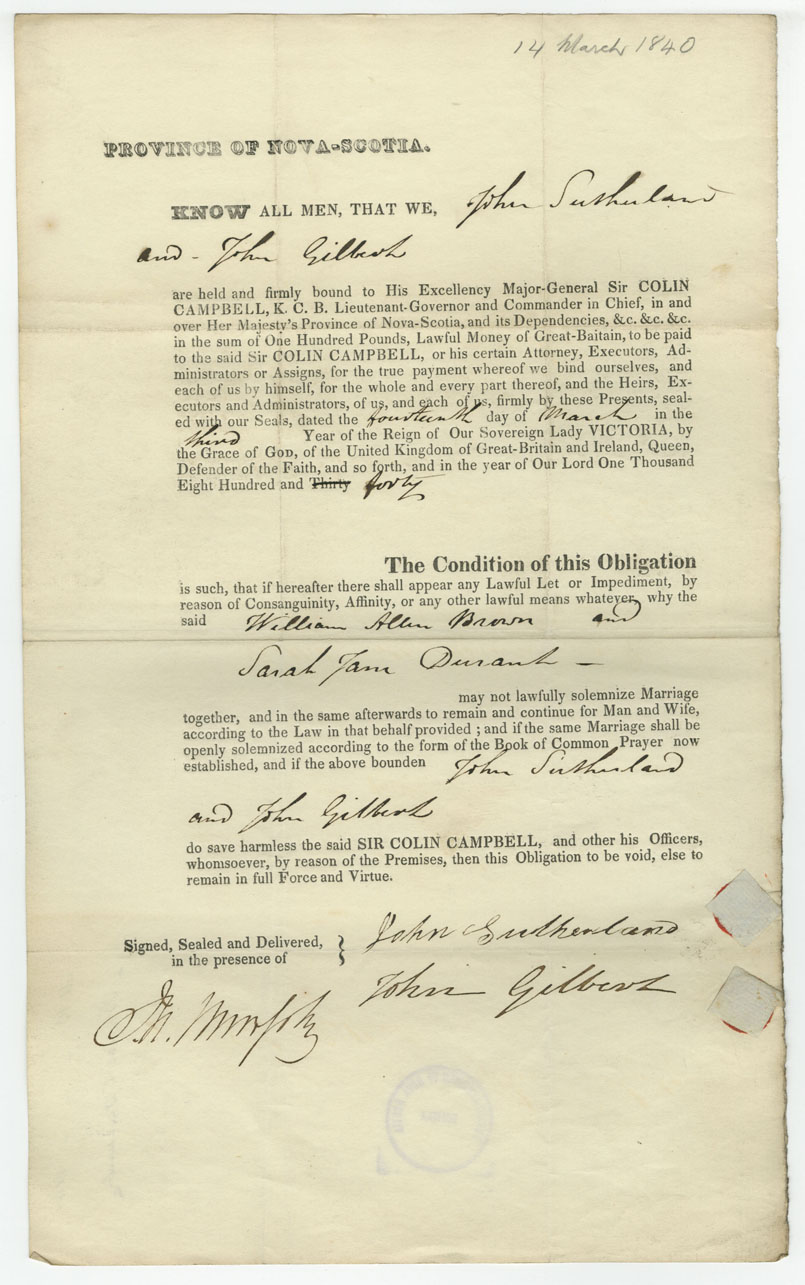 14 March 1840
PROVINCE OF NOVA-SCOTIA.
KNOW ALL MEN, THAT WE, John Sutherland
and - John Gilbert
are held and firmly bound to His Excellency Major-General Sir COLIN
CAMPBELL, K. C. B. Lieutenant-Governor and Commander in Chief, in and
over Her Majesty's Province of Nova-Scotia, and its Dependencies, &c. &c. &c.
in the sum of One Hundred Pounds, Lawful Money of Great-Baitain, to be paid
to the said Sir COLIN CAMPBELL, or his certain Attorney, Executors, Ad-
ministrators or Assigns, for the true payment whereof we bind ourselves, and
each of us by himself, for the whole and every part thereof, and the Heirs, Ex-
ecutors and Administrators, of us, and each of us, firmly by these Presents, seal-
ed with our Seals, dated the fourteenth day of March in the
third Year of the Reign of Our Sovereign Lady VICTORIA, by
the Grace of GOD, of the United Kingdom of Great-Britain and Ireland, Queen,
Defender of the Faith, and so forth, and in the year of Our Lord One Thousand
Eight Hundred and Thirty forty
The Condition of this Obligation
is such, that if hereafter there shall appear any Lawful Let or Impediment, by
reason of Consanguinity, Affinity, or any other lawful means whatever, why the
said William Allen Brown and
Sarah Jane Durant -
may not lawfully solemnize Marriage
together, and in the same afterwards to remain and continue for Man and Wife,
according to the Law in that behalf provided ; and if the same Marriage shall be
openly solemnized according to the form of the Book of Common Prayer now
established, and if the above bounden John Sutherland
and John Gilbert
do save harmless the said SIR COLIN CAMPBELL, and other his Officers,
whomsoever, by reason of the Premises, then this Obligation to be void, else to
remain in full Force and Virtue.
Signed, Sealed and Delivered,
in the presence of
John Sutherland
John Gilbert